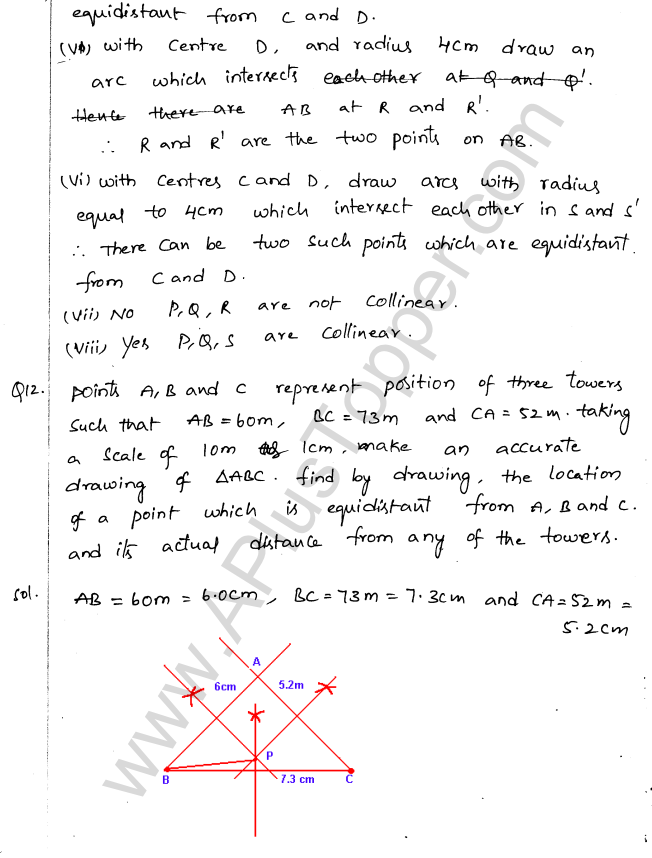 equidistant from C and D.
(v) with Centre D, and radius 4cm draw an
arc which intersects each other at Q and Q'.
Hence there are AB at R and R'.
∴ R and R' are the two points on AB.
(vi) with centres C and D, draw arcs with radius
equal to 4cm which intersect each other in S and S'
∴ There can be two such points which are equidistant
from C and D.
(vii) No P, Q, R are not collinear.
(viii) Yes P, Q, S are collinear.
Q12. points A, B and C represent position of three towers
such that AB = 60m, BC = 73m and CA = 52m. taking
a scale of 10m 1cm, make an accurate
drawing of ΔABC. find by drawing, the location
of a point which is equidistant from A, B and C.
and its actual distance from any of the towers.
Sol. AB = 60m = 6.0cm, BC = 73m = 7.3cm and CA = 52m =
5.2cm
A
6cm 5.2m
P
B 7.3 cm C
www.APlusTopper.com